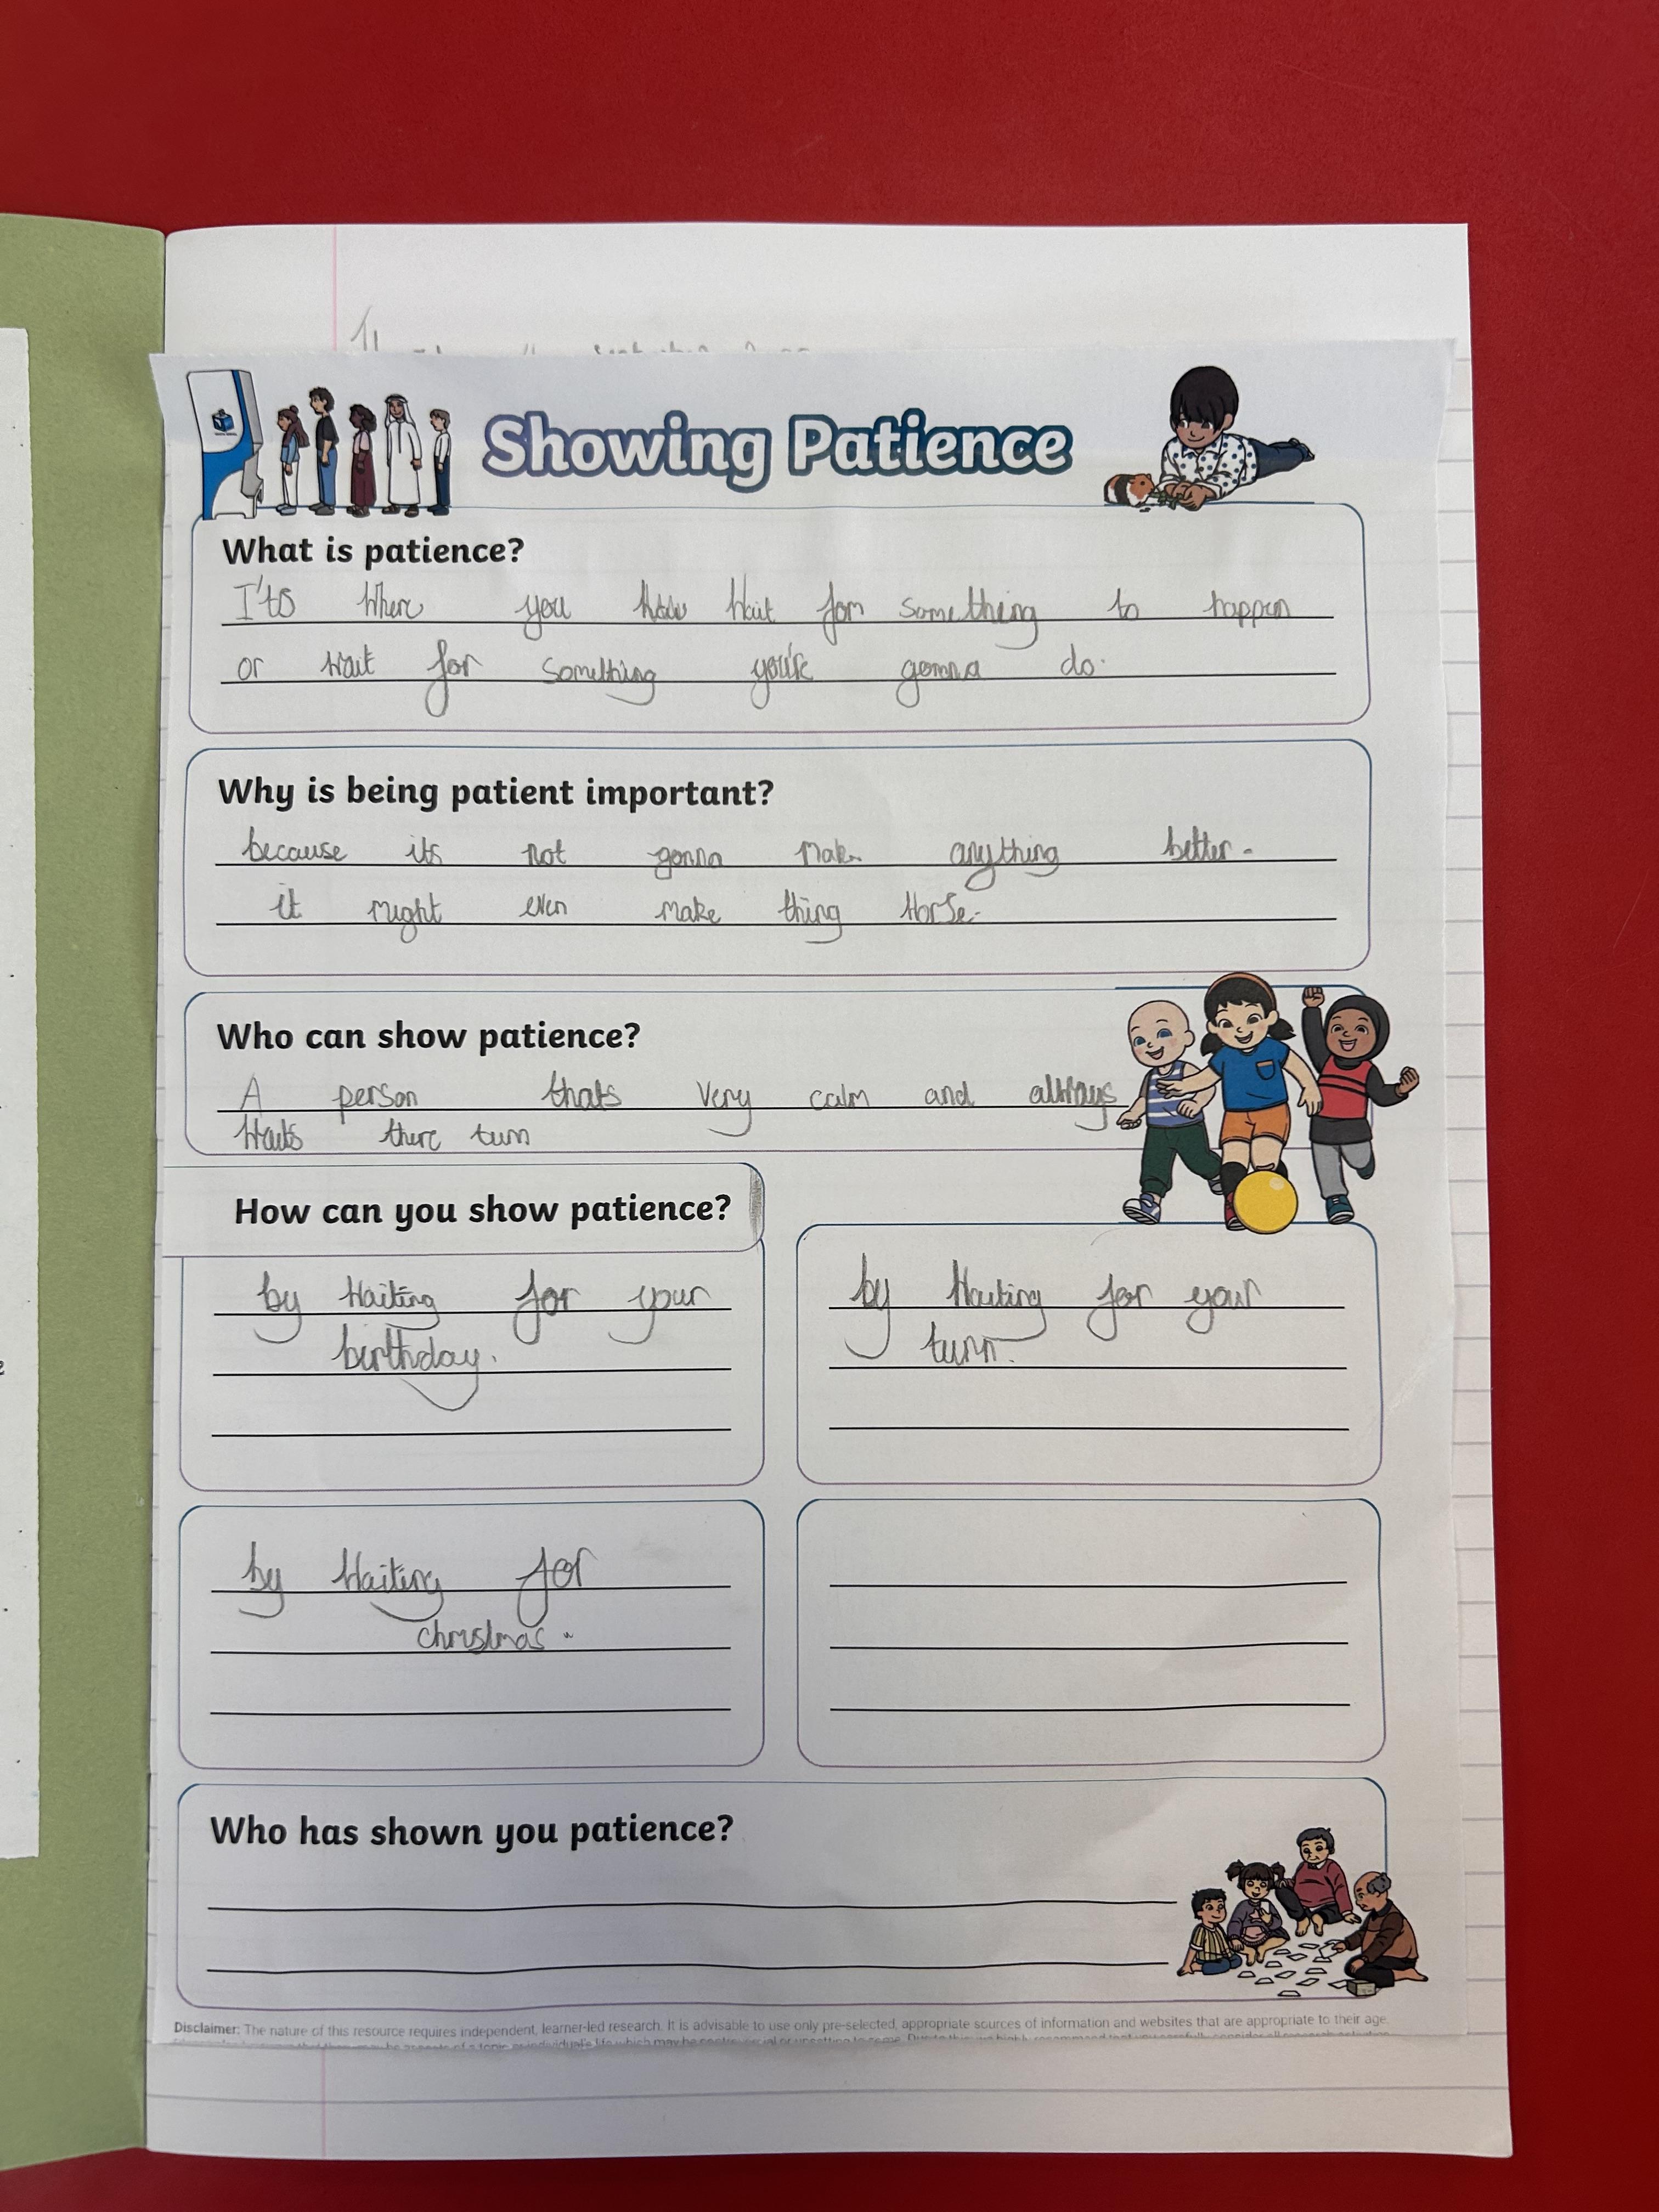 Showing Patience
What is patience?
I'ts where you have wait for something to happen
or wait for something you're gonna do.
Why is being patient important?
because its not gonna make anything better.
it might even make thing worse.
Who can show patience?
A person thats very calm and always
waits there turn
How can you show patience?
by waiting for your
birthday.
by waiting for your
turn.
by waiting for
christmas.
Who has shown you patience?
Disclaimer: The nature of this resource requires independent, learner-led research. It is advisable to use only pre-selected, appropriate sources of information and websites that are appropriate to their age.